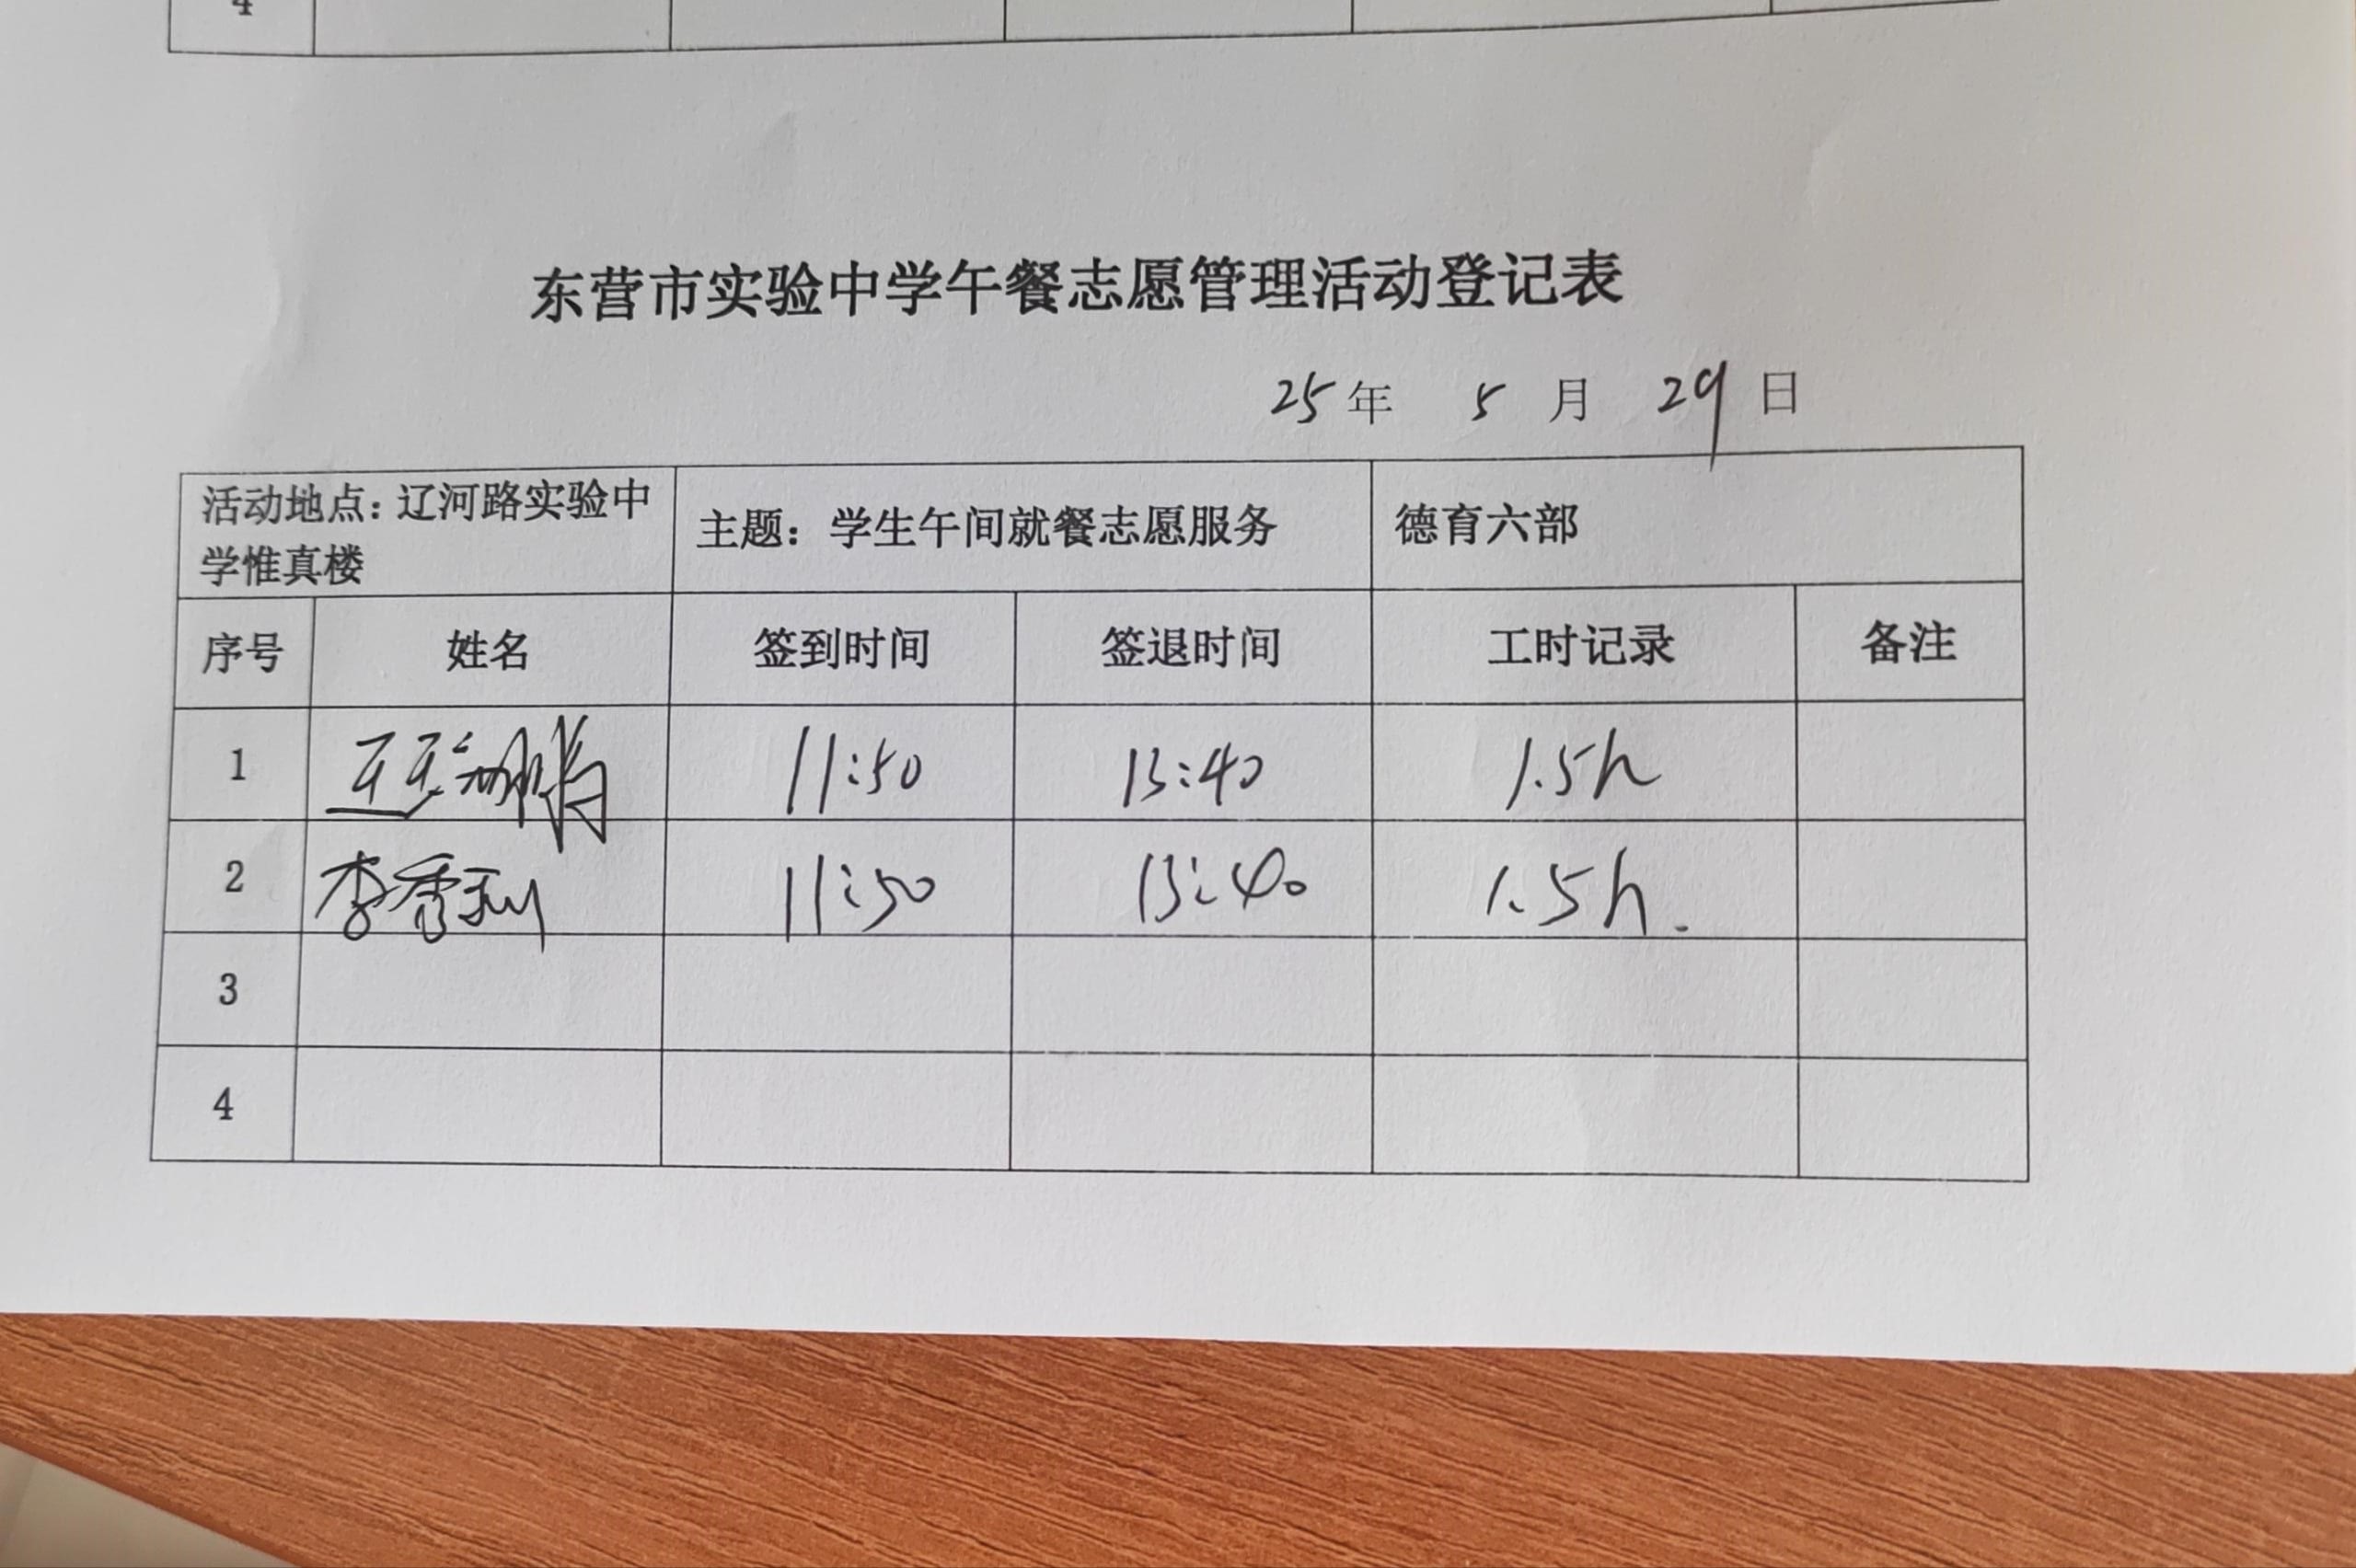 4
东营市实验中学午餐志愿管理活动登记表
25年 5月 29日
活动地点: 辽河路实验中
学惟真楼
主题: 学生午间就餐志愿服务
德育六部
序号 姓名 签到时间 签退时间 工时记录 备注
1 11:50 13:40 1.5h
2 李秀利 11:50 13:40 1.5h.
3
4